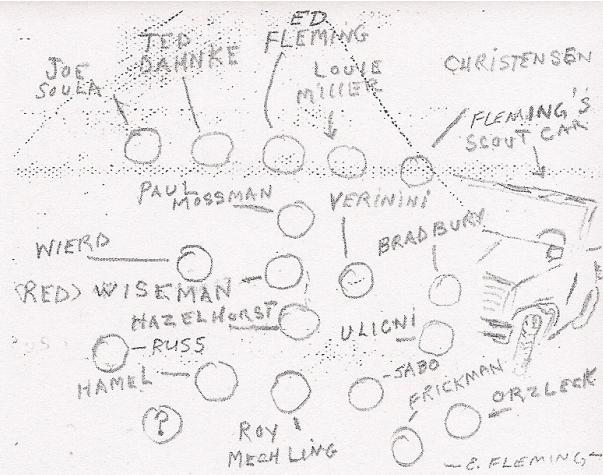 ED
FLEMING
TED
DAHNKE
JOE
SOULA
LOUIE
MILLER
CHRISTENSEN
FLEMING'S
SCOUT CAR
PAUL
MOSSMAN
VERININI
BRADBURY
WIERD
(RED) WISEMAN
HAZELHORST
ULICNI
RUSS
SABO
HAMEL
FRICKMAN
ORZLECK
?
ROY
MECHLING
-E. FLEMING-